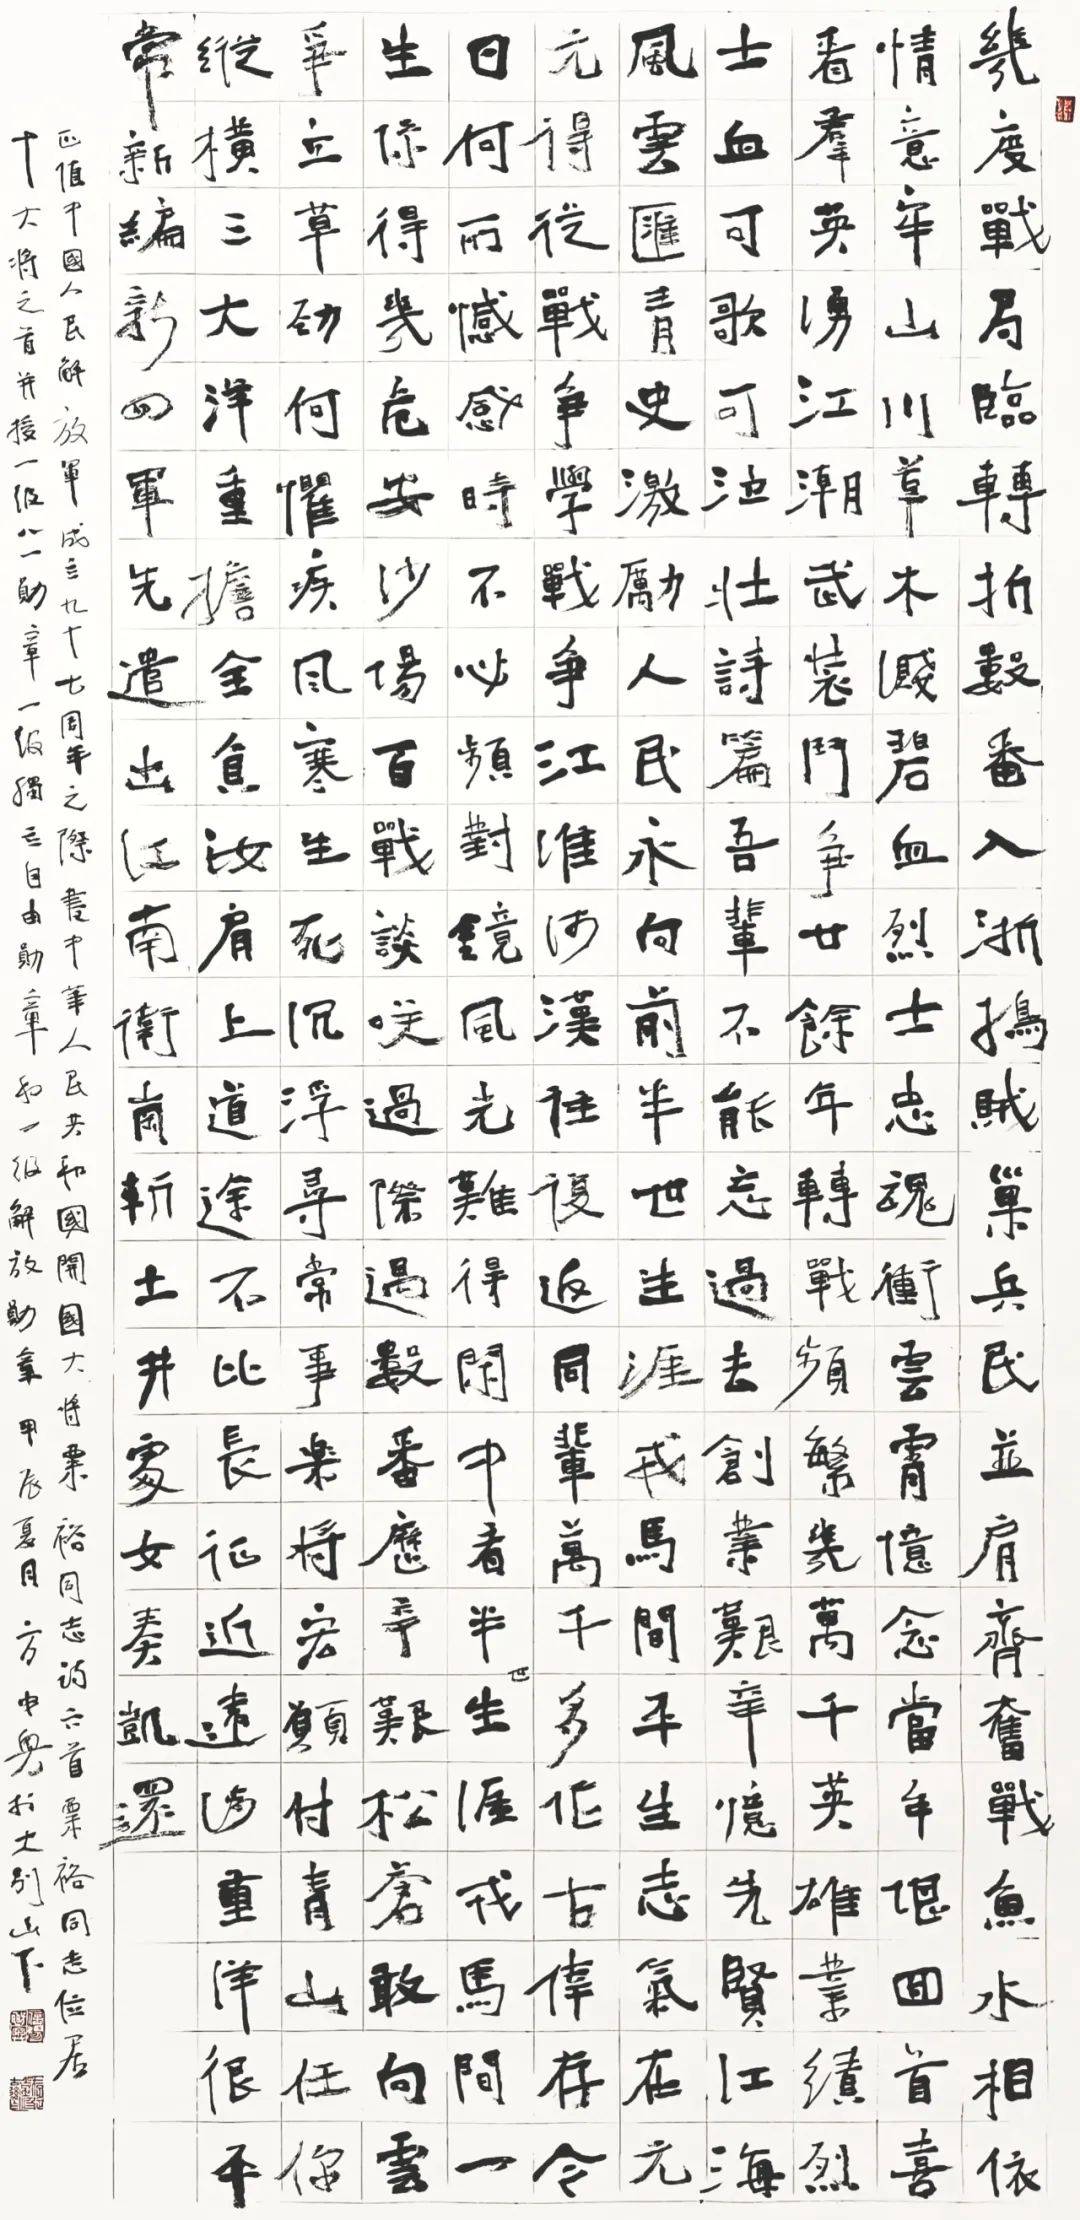 幾度戰局臨轉折數番入浙搗賊巢兵民並肩齊奮戰魚水相依
情意牢山川草木濺碧血烈士忠魂衝雲霄憶念當年堪回首喜
看羣英湧江潮武裝鬥爭廿餘年轉戰頻繁幾萬千英雄業績烈
士血可歌可泣壯詩篇吾輩不能忘過去創業艱辛憶先賢江海
風雲匯青史激勵人民永向前半世生涯戎馬間平生志氣在元
元得從戰爭學戰爭江淮河漢往復返同輩萬千多作古倖存今
日何所憾感時不必頻對鏡風光難得閑中看半世生涯戎馬間一
生係得幾危安沙場百戰談笑過際遇數番歷辛艱松蒼敢向雲
爭立草勁何懼疾風寒生死沉浮尋常事樂將宏願付青山任你
縱橫三大洋重擔全負汝肩上道途不比長征近遠涉重洋很平
常新編新四軍先遣出江南衛崗斬土井處女奏凱還
正值中國人民解放軍成立九十七周年之際書中華人民共和國開國大將粟裕同志詩六首粟裕同志位居
十大將之首并授一級八一勛章一級獨立自由勛章和一級解放勛章甲辰夏月方中於大別山下